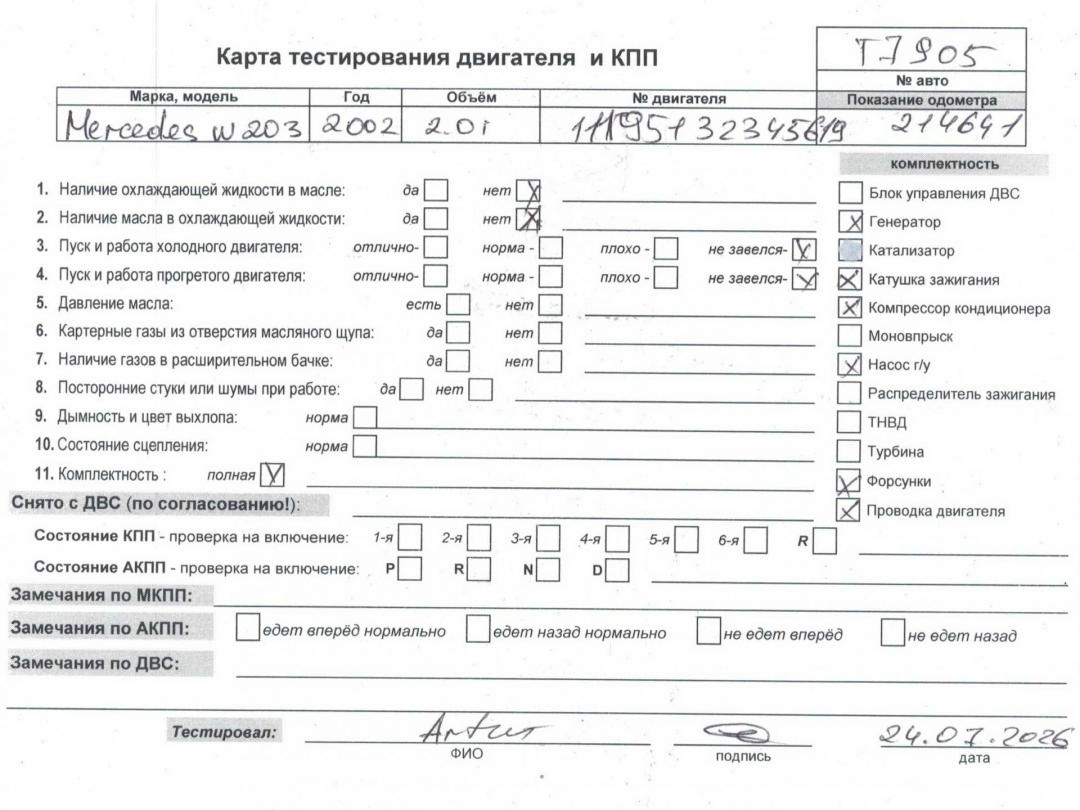 Карта тестирования двигателя и КПП
T7905
№ авто
Марка, модель Год Объём № двигателя Показание одометра
Mercedes w203 2002 2.0i 214641
комплектность
1. Наличие охлаждающей жидкости в масле: да нет X
Блок управления ДВС
2. Наличие масла в охлаждающей жидкости: да нет X
X Генератор
3. Пуск и работа холодного двигателя: отлично- норма - плохо - не завелся- X
Катализатор
4. Пуск и работа прогретого двигателя: отлично- норма - плохо - не завелся- X
X Катушка зажигания
5. Давление масла: есть нет
X Компрессор кондиционера
6. Картерные газы из отверстия масляного щупа: да нет
Моновпрыск
7. Наличие газов в расширительном бачке: да нет
X Насос г/у
8. Посторонние стуки или шумы при работе: да нет
Распределитель зажигания
9. Дымность и цвет выхлопа: норма
ТНВД
10. Состояние сцепления: норма
Турбина
11. Комплектность : полная V
X Форсунки
Снято с ДВС (по согласованию!):
X Проводка двигателя
Состояние КПП - проверка на включение: 1-я 2-я 3-я 4-я 5-я 6-я R
Состояние АКПП - проверка на включение: P R N D
Замечания по МКПП:
Замечания по АКПП: едет вперёд нормально едет назад нормально не едет вперёд не едет назад
Замечания по ДВС:
Тестировал: Artur 24.07.2026
ФИО подпись дата